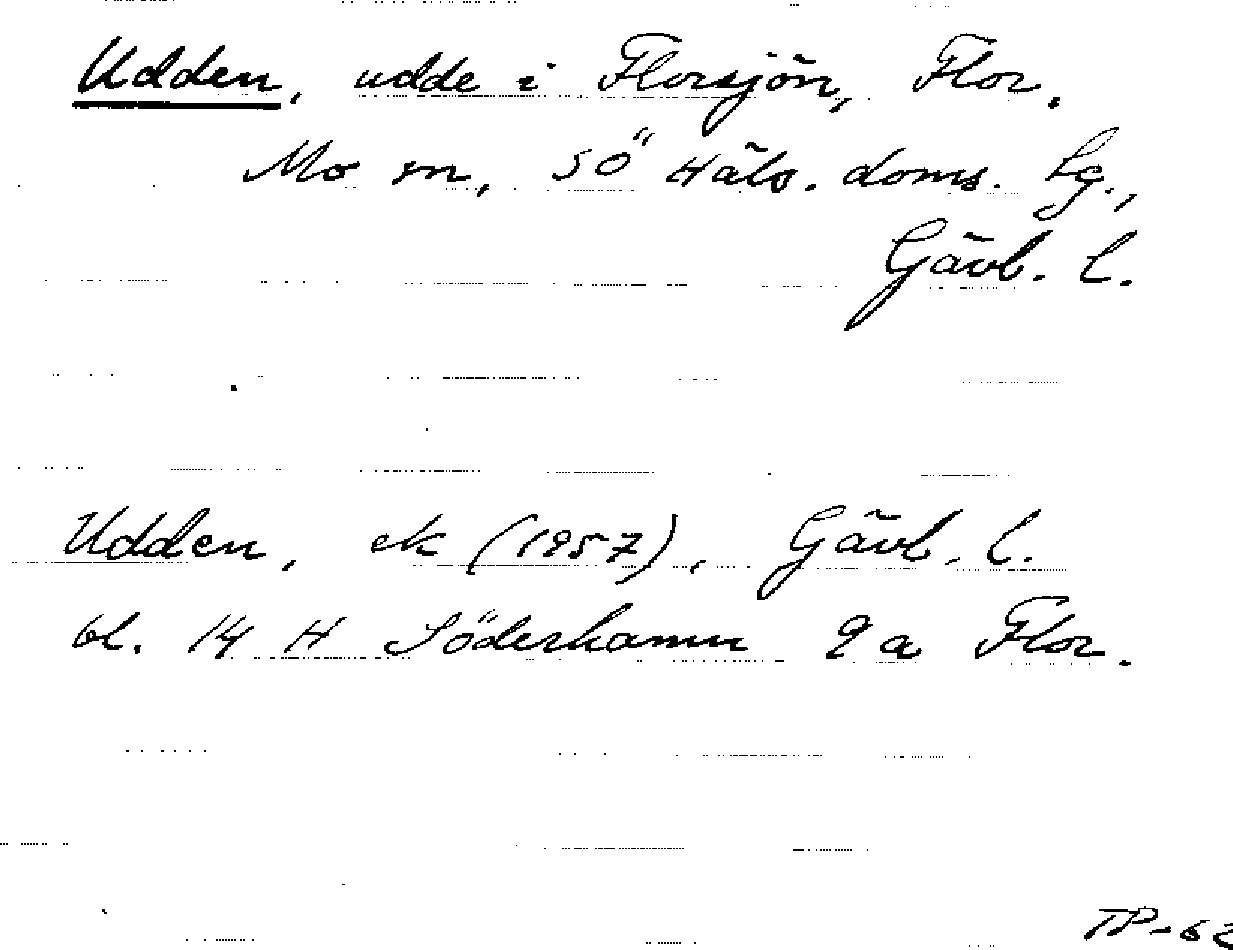 Udden, udde i Florsjön, Flor.
Mo sn, SÖ Häls. doms. sg.,
Gävl. l.
Udden, ek (1957), Gävl. l.
bl. 14 H Söderhamn 9 a Flor.